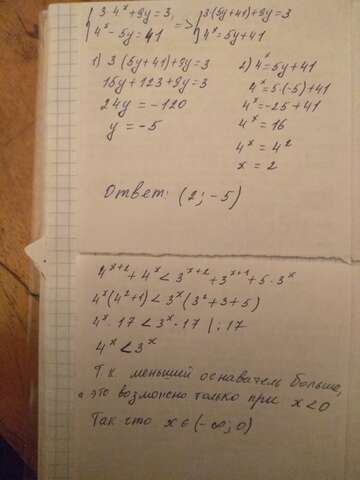 {3·4ˣ+9y=3, => {3(5y+41)+9y=3
4ˣ-5y=41 4ˣ=5y+41
1) 3(5y+41)+9y=3
15y+123+9y=3
24y=-120
y=-5
2) 4ˣ=5y+41
4ˣ=5·(-5)+41
4ˣ=-25+41
4ˣ=16
4ˣ=4²
x=2
Ответ: (2;-5)
4ˣ⁺²+4ˣ<3ˣ⁺²+3ˣ⁺¹+5·3ˣ
4ˣ(4²+1)<3ˣ(3²+3+5)
4ˣ·17<3ˣ·17 |:17
4ˣ<3ˣ
Т.к. меньший основатель больше,
это возможно только при x<0
Так что x∈(-∞;0)